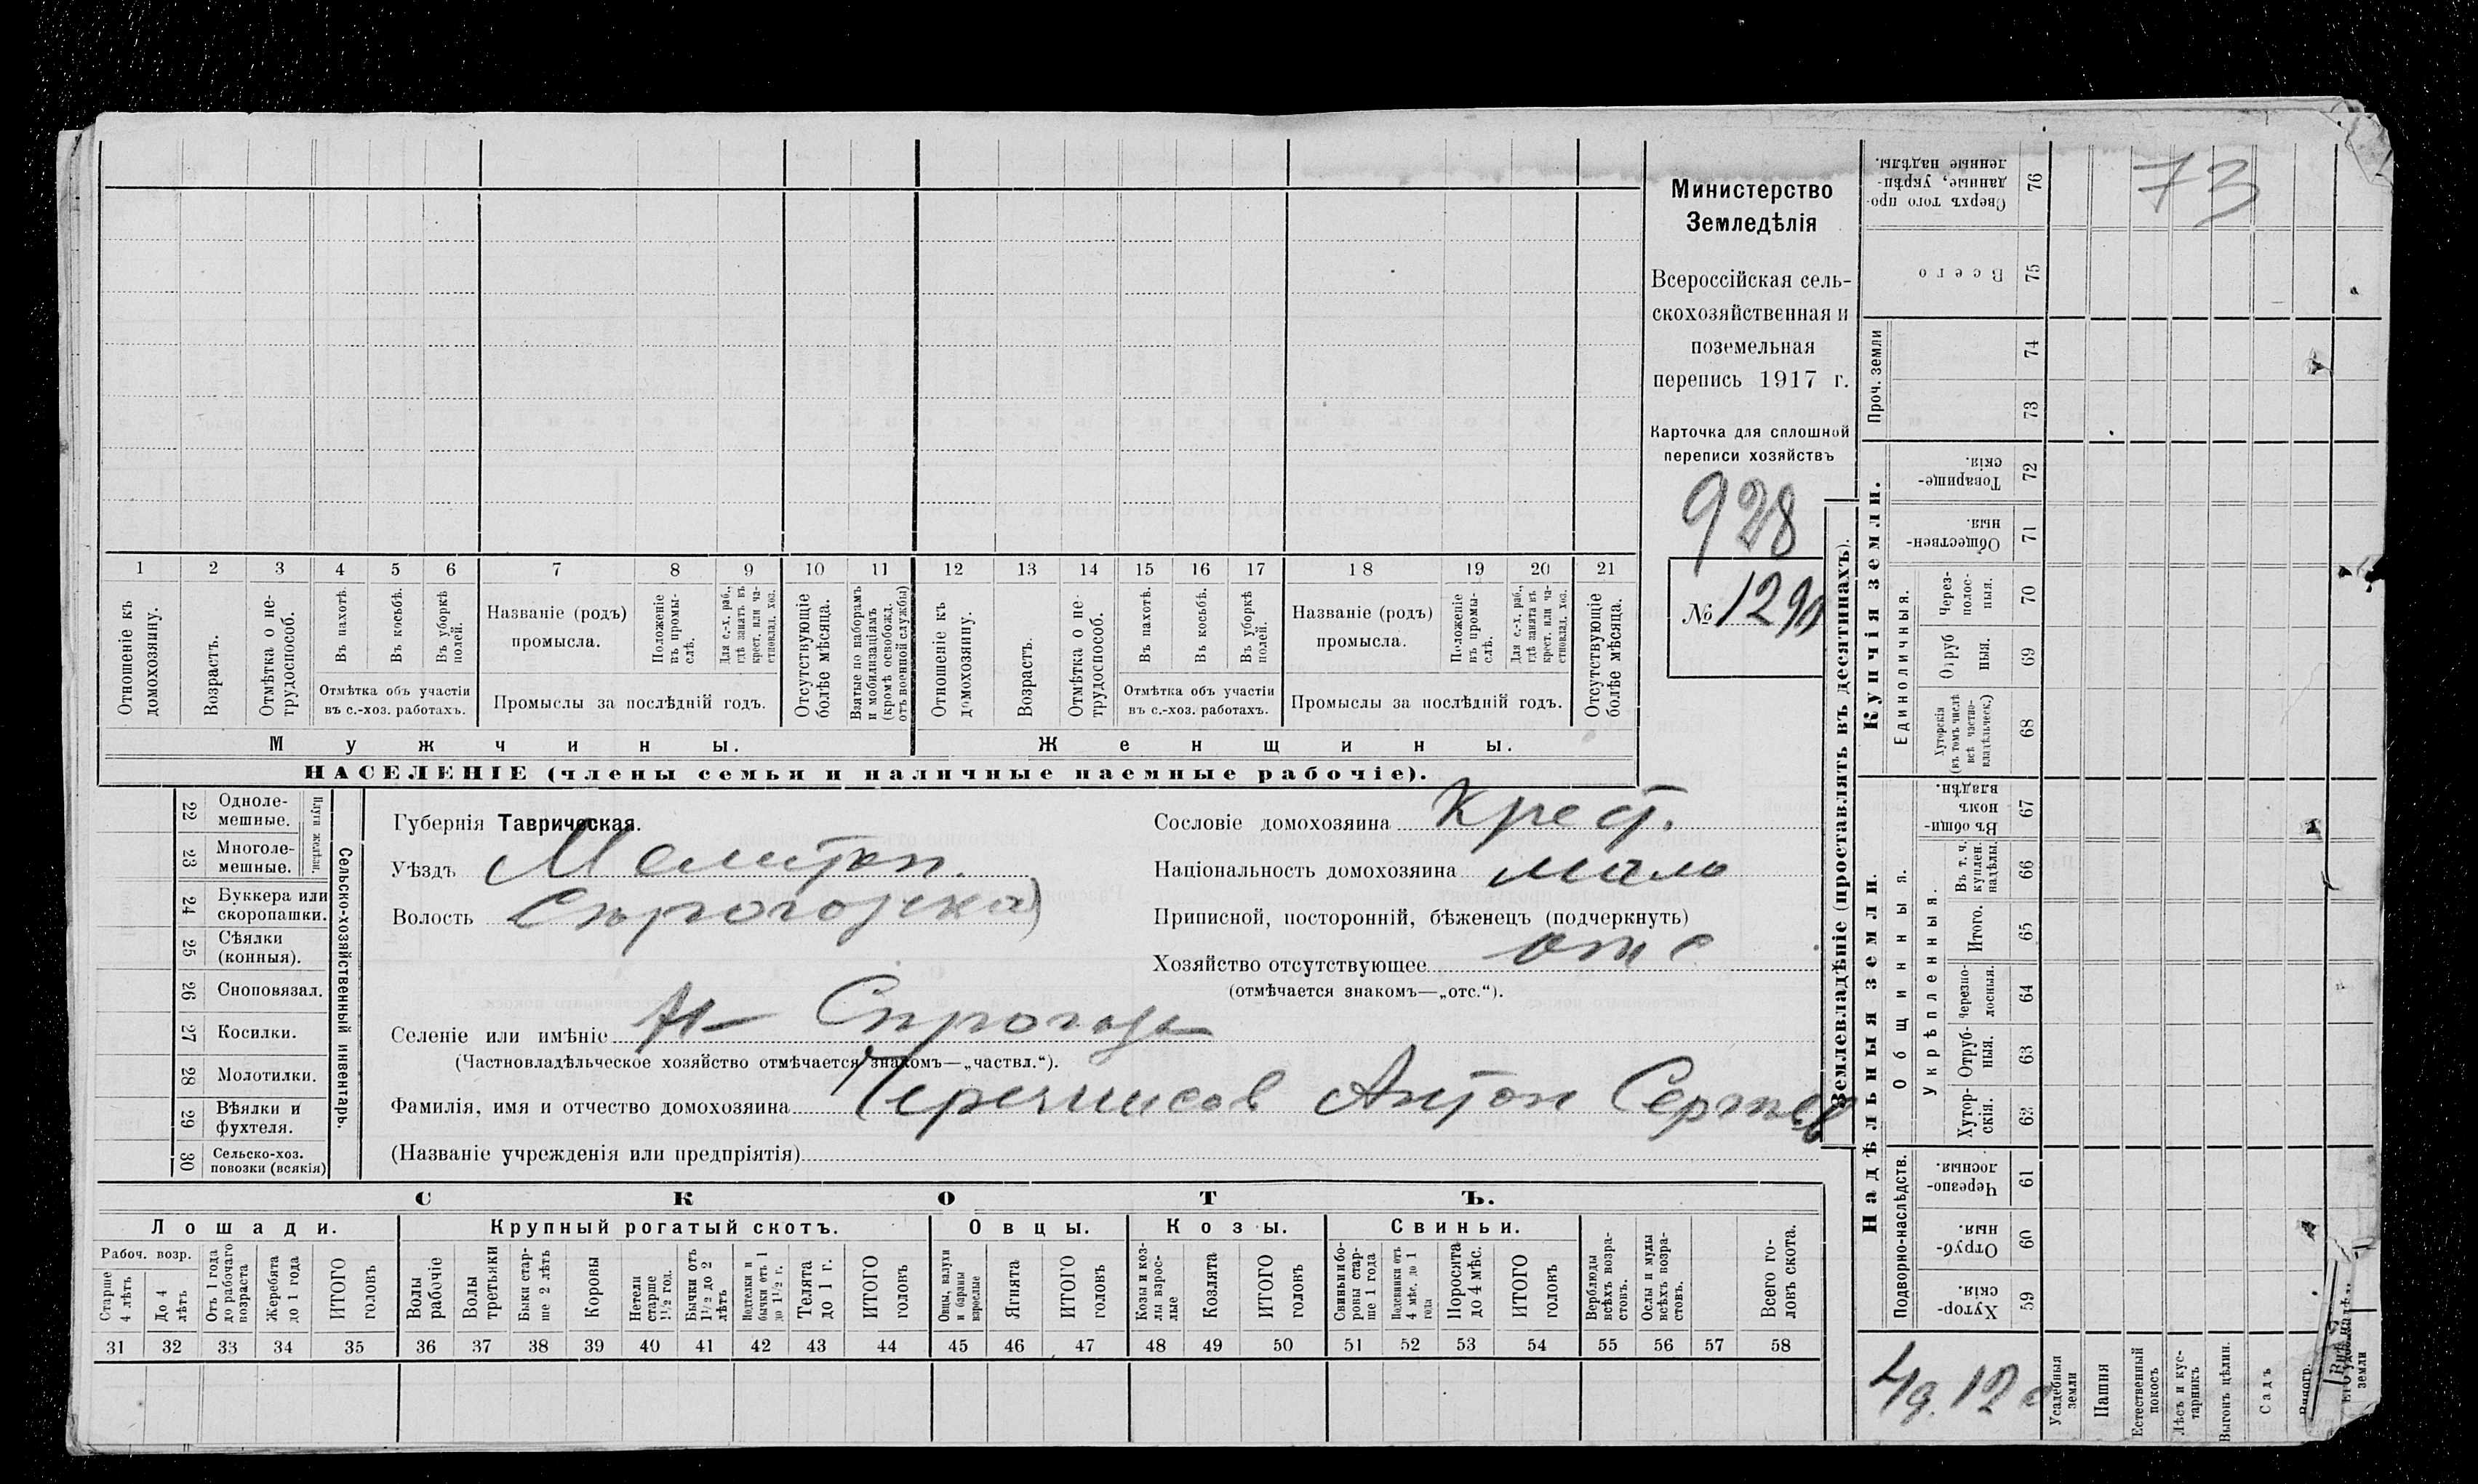 Министерство
Земледѣлія
Всероссійская сель-
скохозяйственная и
поземельная
перепись 1917 г.
Карточка для сплошной
переписи хозяйствъ
928
№ 1290
73
1 2 3 4 5 6 7 8 9 10 11 12 13 14 15 16 17 18 19 20 21
Отношеніе къ домохозяину.
Возрастъ.
Отмѣтка о не-трудоспособ.
Въ пахотѣ.
Въ косьбѣ.
Въ уборкѣ полей.
Отмѣтка объ участіи
въ с.-хоз. работахъ.
Названіе (родъ)
промысла.
Положеніе въ промы-слѣ.
Для с.-х. раб., гдѣ занятъ въ крест. или ча-стновлад. хоз.
Промыслы за послѣдній годъ.
Отсутствующіе болѣе мѣсяца.
Взятые по наборамъ и мобилизаціямъ (кромѣ освобожд. отъ военной службы)
Отношеніе къ домохозяину.
Возрастъ.
Отмѣтка о не-трудоспособ.
Въ пахотѣ.
Въ косьбѣ.
Въ уборкѣ полей.
Отмѣтка объ участіи
въ с.-хоз. работахъ.
Названіе (родъ)
промысла.
Положеніе въ промы-слѣ.
Для с.-х. раб., гдѣ занята въ крест. или ча-стновлад. хоз.
Промыслы за послѣдній годъ.
Отсутствующіе болѣе мѣсяца.
Мужчины.
Женщины.
НАСЕЛЕНІЕ (члены семьи и наличные наемные рабочіе).
Сельско-хозяйственный инвентарь.
Плуги желѣзн.
22 Одноле-мешные.
23 Многоле-мешные.
24 Буккера или скоропашки.
25 Сѣялки (конныя).
26 Сноповязал.
27 Косилки.
28 Молотилки.
29 Вѣялки и фухтеля.
30 Сельско-хоз. повозки (всякія)
Губернія Таврическая.
Уѣздъ Мелитоп.
Волость
Селеніе или имѣніе
(Частновладѣльческое хозяйство отмѣчается знакомъ—„частвл.“).
Фамилія, имя и отчество домохозяина Антон
(Названіе учрежденія или предпріятія)
Сословіе домохозяина Крест.
Національность домохозяина мало
Приписной, посторонній, бѣженецъ (подчеркнуть)
Хозяйство отсутствующее отс
(отмѣчается знакомъ—„отс.“).
СКОТЪ.
Лошади.
Крупный рогатый скотъ.
Овцы.
Козы.
Свиньи.
Рабоч. возр.
Старше 4 лѣтъ
До 4 лѣтъ
Отъ 1 года до рабочаго возраста
Жеребята до 1 года
ИТОГО головъ
Волы рабочіе
Волы третьяки
Быки стар-ше 2 лѣтъ
Коровы
Нетели старше 1½ год.
Бычки отъ 1½ до 2 лѣтъ
Подтелки и бычки отъ 1 до 1½ г.
Телята до 1 г.
ИТОГО головъ
Овцы, валухи и бараны взрослые
Ягнята
ИТОГО головъ
Козы и коз-лы взрос-лые
Козлята
ИТОГО головъ
Свиньи и бо-ровы стар-ше 1 года
Подсвинки отъ 4 мѣс. до 1 года
Поросята до 4 мѣс.
ИТОГО головъ
Верблюды всѣхъ возра-стовъ.
Ослы и мулы всѣхъ возра-стовъ.
Всего го-ловъ скота.
31 32 33 34 35 36 37 38 39 40 41 42 43 44 45 46 47 48 49 50 51 52 53 54 55 56 57 58
Землевладѣніе (проставлять въ десятинахъ).
Купчія земли.
Надѣльныя земли.
Проч. земли
Единоличныя.
Общинныя.
Укрѣпленныя.
Подворно-наслѣдств.
Сверхъ того про-данные, укрѣп-ленные надѣлы. 76
Всего 75
74
73
Товарище-скія. 72
Обществен-ныя. 71
Через-полос-ныя. 70
Отруб ныя. 69
Хуторскія (въ томъ числѣ всѣ частно-владѣльческ.) 68
Въ общи-номъ владѣн. 67
Въ т. ч. куплен. надѣлы. 66
Итого. 65
Черезпо-лосныя. 64
Отруб-ныя. 63
Хутор-скія. 62
Черезпо-лосныя. 61
Отруб-ныя. 60
Хутор-скія. 59
Усадебная земли
Пашня
Естественный покосъ
Лѣсъ и кус-тарникъ
Выгонъ цѣлин.
Садъ
земли